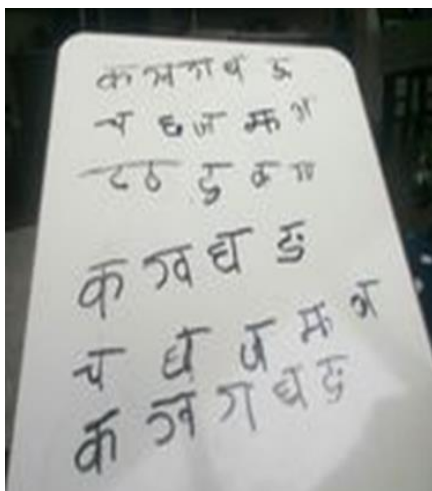 क ख ग घ ङ
च छ ज झ ञ
ट ठ ड ढ ण
क ख घ ङ
च छ ज झ ञ
क ख ग घ ङ